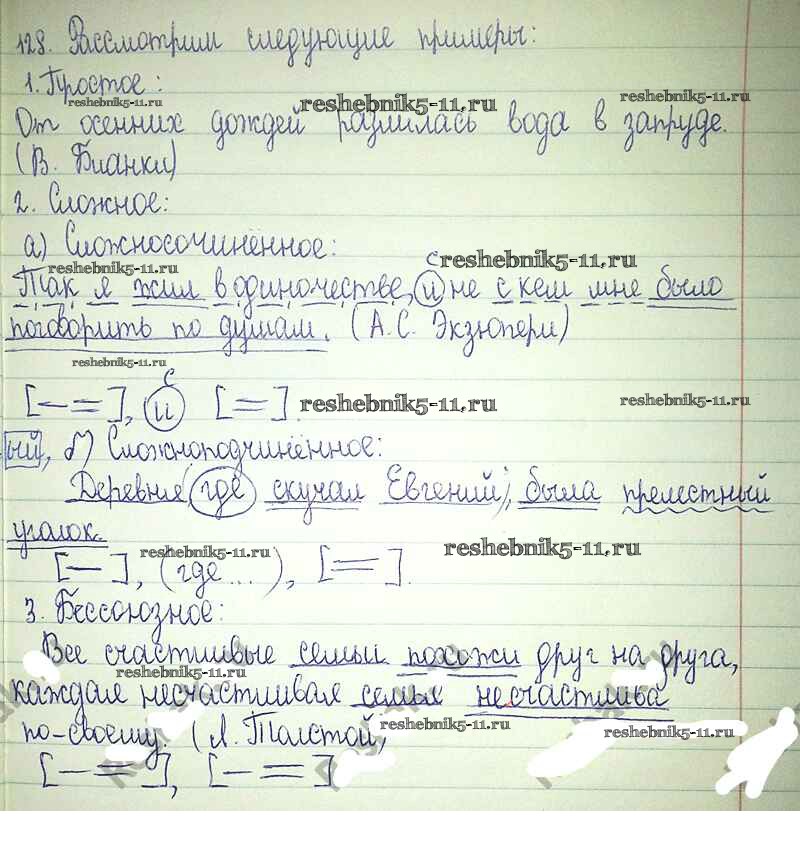 128. Рассмотрим следующие примеры:
1. Простое:
reshebnik5-11.ru reshebnik5-11.ru reshebnik5-11.ru
От осенних дождей разлилась вода в запруде.
(В. Бианки)
2. Сложное:
а) Сложносочинённое:
reshebnik5-11.ru с reshebnik5-11.ru
Так я жил в одиночестве, и не с кем мне было
поговорить по душам. (А.С. Экзюпери)
reshebnik5-11.ru с
[— =], и [=]. reshebnik5-11.ru reshebnik5-11.ru
ый, б) Сложноподчинённое:
Деревня, где скучал Евгений, была прелестный
уголок.
reshebnik5-11.ru reshebnik5-11.ru
[—], (где ...), [=].
3. Бессоюзное:
Все счастливые семьи похожи друг на друга,
reshebnik5-11.ru
каждая несчастливая семья несчастлива
по-своему. (Л. Толстой,
reshebnik5-11.ru reshebnik5-11.ru
[— =], [— =]